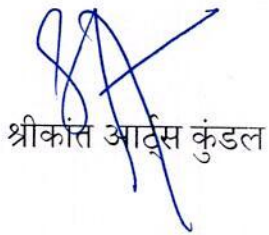 श्रीकांत आर्ट्स कुंडल